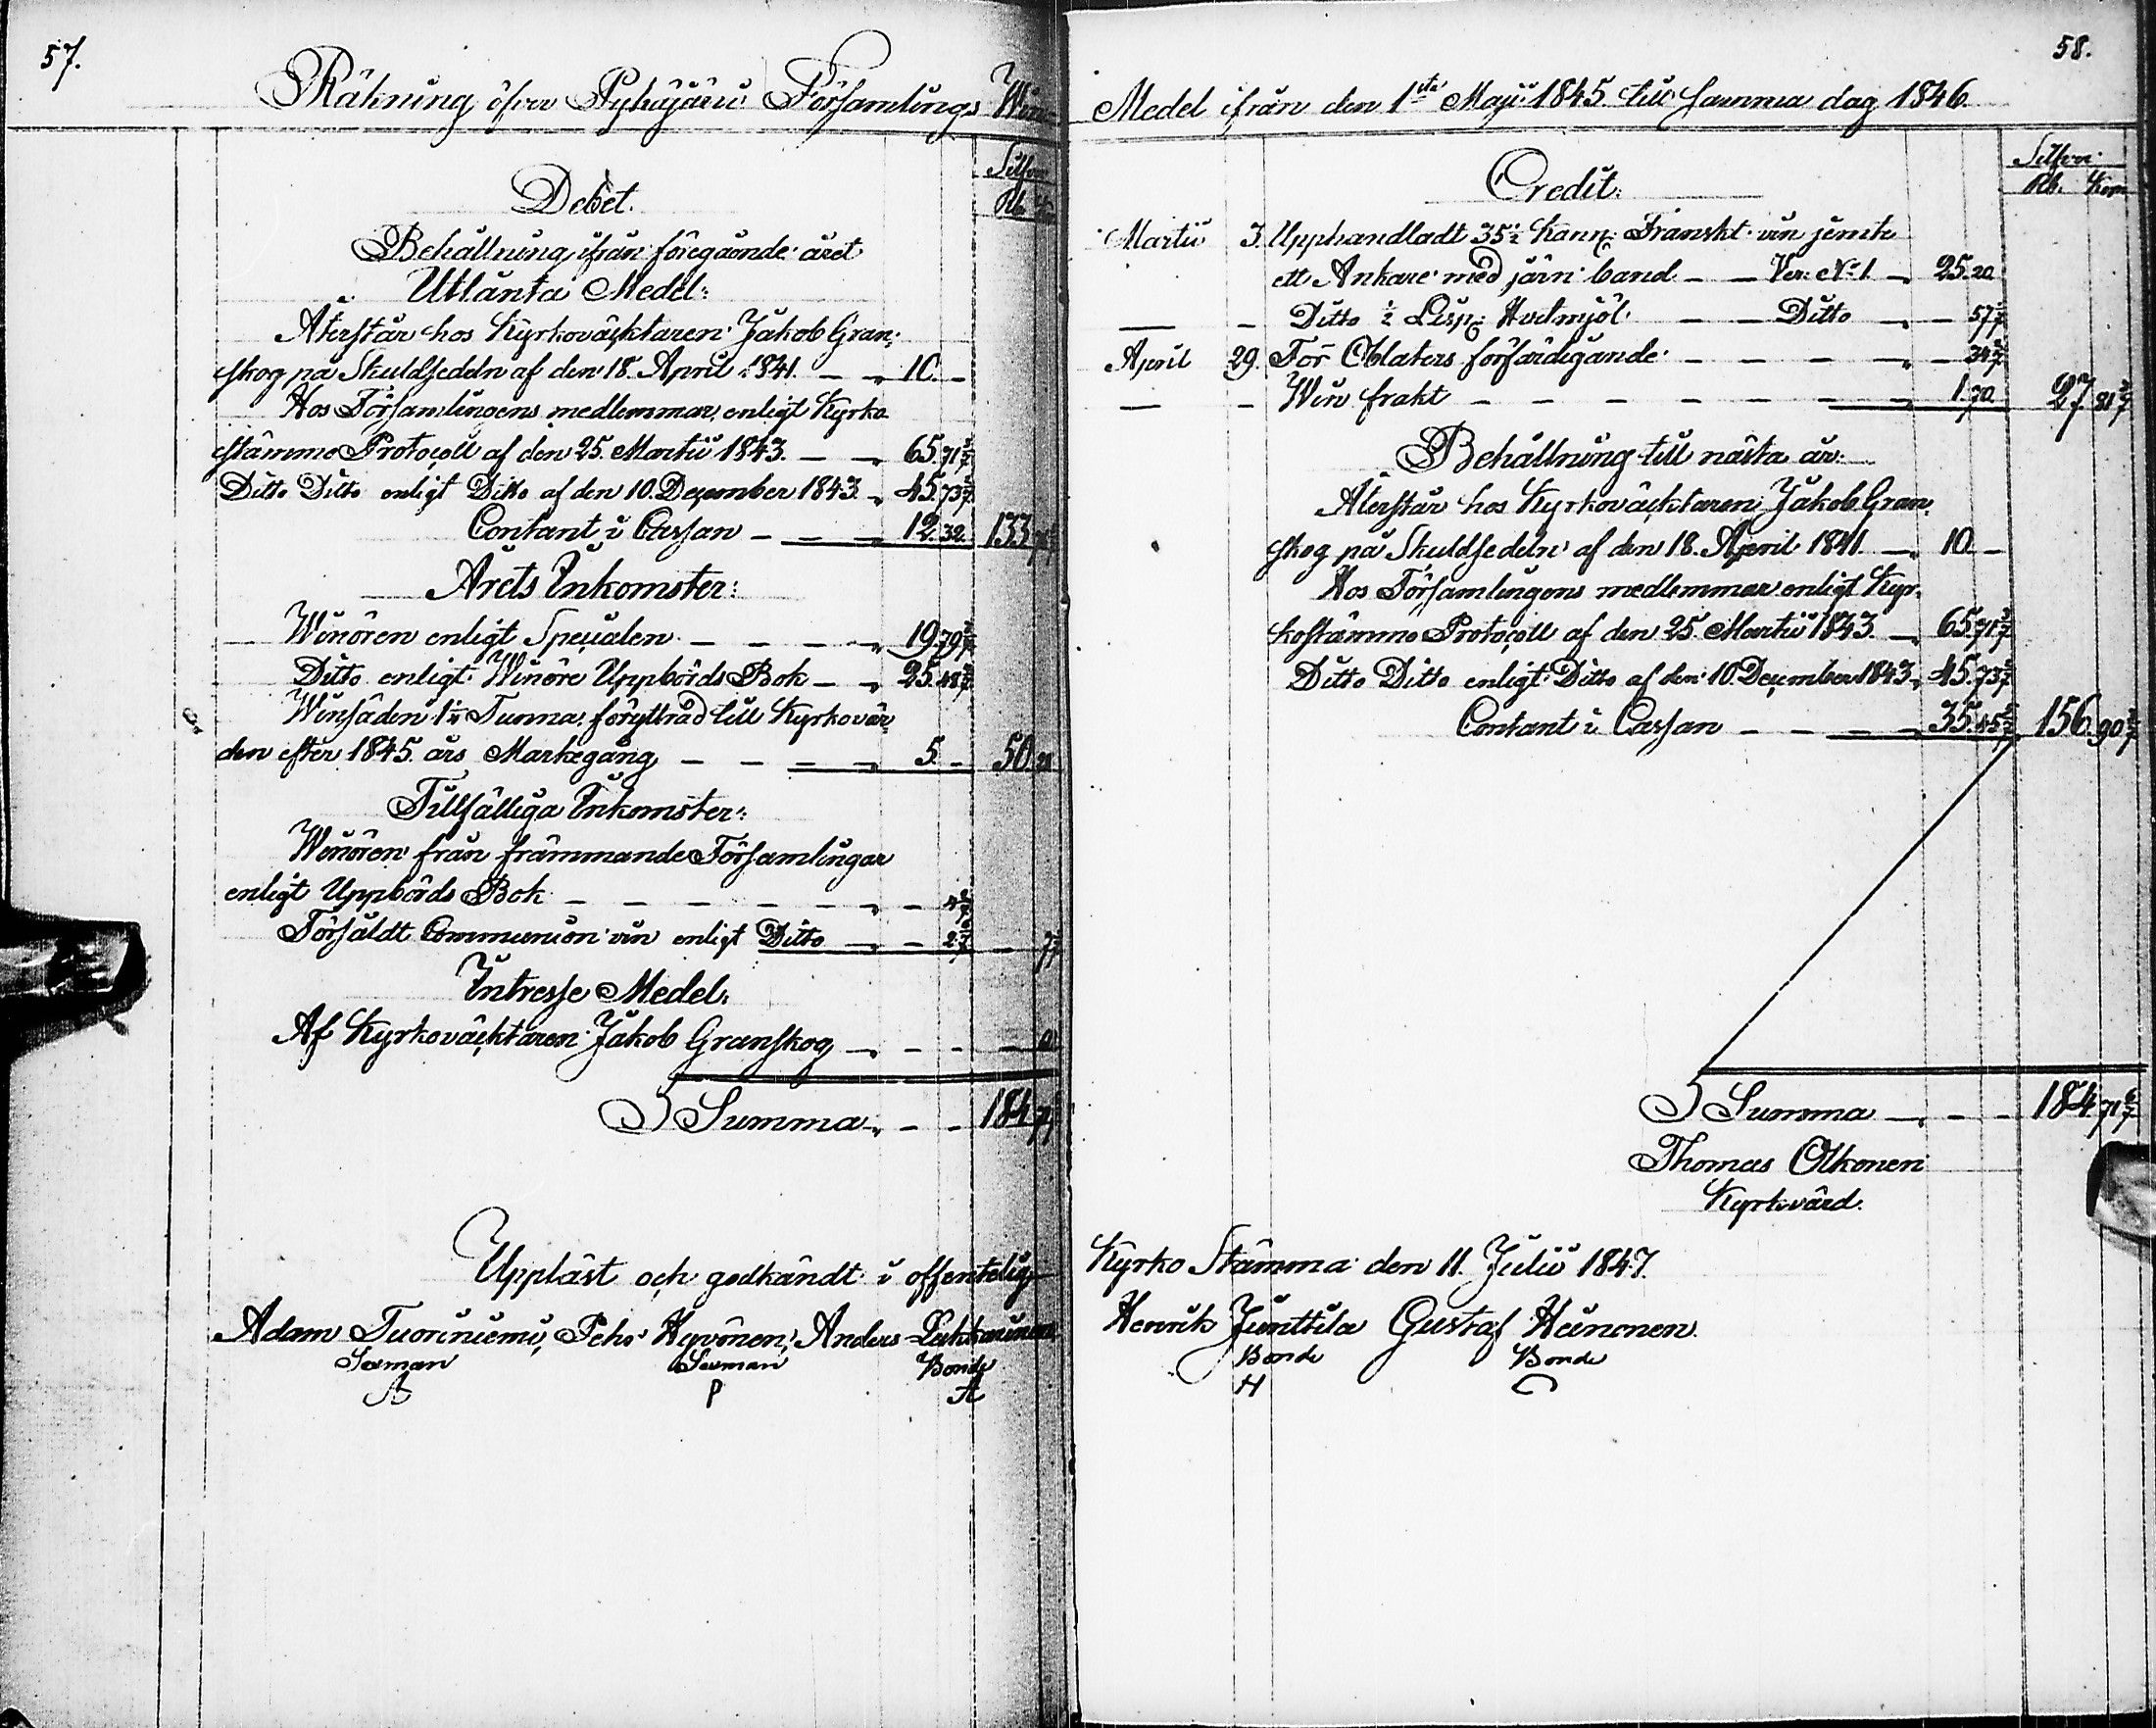 57.
Räkning öfver Pyhäjärvi Församlings Win
Silfver
Debet.
Rb.
Behållning ifrån föregående året
Utlånta Medel:
Återstår hos Kyrkoväcktaren Jakob Gran-
skog på Skuldsedeln af den 18. April 1841. — „ 10. —
Hos Församlingens medlemmar enligt Kyrko
stämmo Protocoll af den 25. Martii 1843. — „ 65. 71 3/7
Ditto Ditto enligt Ditto af den 10. December 1843. „ 45. 73 2/7
Contant i Cassan — — „ 12. 32. 133
Årets Inkomster:
Winören enligt Specialen — — — „ 19. 79
Ditto enligt Winöre Uppbörds Bok — „ 25. 48
Winsäden 1 1/4 Tunna, föryttrad till Kyrkovär-
den efter 1845. års Markegång — — — „ 5. — 50. 28
Tillfälliga Inkomster:
Winören från främmande Församlingar
enligt Uppbörds Bok — — — — — „ — 4
Försåldt Communion vin enligt Ditto — „ — 2 — 7
Intresse Medel:
Af Kyrkoväcktaren Jakob Granskog — „ — — —
Summa „ — — 184
Uppläst och godkändt i offentelig
Adam Tuoriniemi, Pehr Hyvönen, Anders Lukkarinen
Sexman Sexman Bonde
A P A
58.
Medel ifrån den 1sta Maji 1845. till samma dag 1846.
Silfver
Credit:
Rb. Kop
Martii 3. Upphandladt 35 1/2 Kann: Franskt vin jemte
ett Ankare med järn band — — Ver. No 1. „ 25. 20
— — Ditto 1/2 Lisp: Hvetmjöl — — Ditto „ — 57 1/7
April 29. För Oblaters förfärdigande — — — — „ — 34 2/7
— — Win frakt — — — — — — „ 1. 70 27. 81 3/7
Behållning till nästa år:
Återstår hos Kyrkoväcktaren Jakob Gran-
skog på Skuldsedeln af den 18. April 1841. — „ 10 —
Hos Församlingens medlemmar enligt Kyr-
kostämmo Protocoll af den 25. Martii 1843. „ 65. 71 3/7
Ditto Ditto enligt Ditto af den 10. December 1843. „ 45. 73 2/7
Contant i Cassan — — — — „ 35. 45 5/7 156. 90 3/7
Summa — „ — — — 184 71 6/7
Thomas Olkonen
Kyrkvärd.
Kyrko Stämma den 11. Julii 1847.
Henrik Junttila Gustaf Heinonen.
Bonde Bonde
H